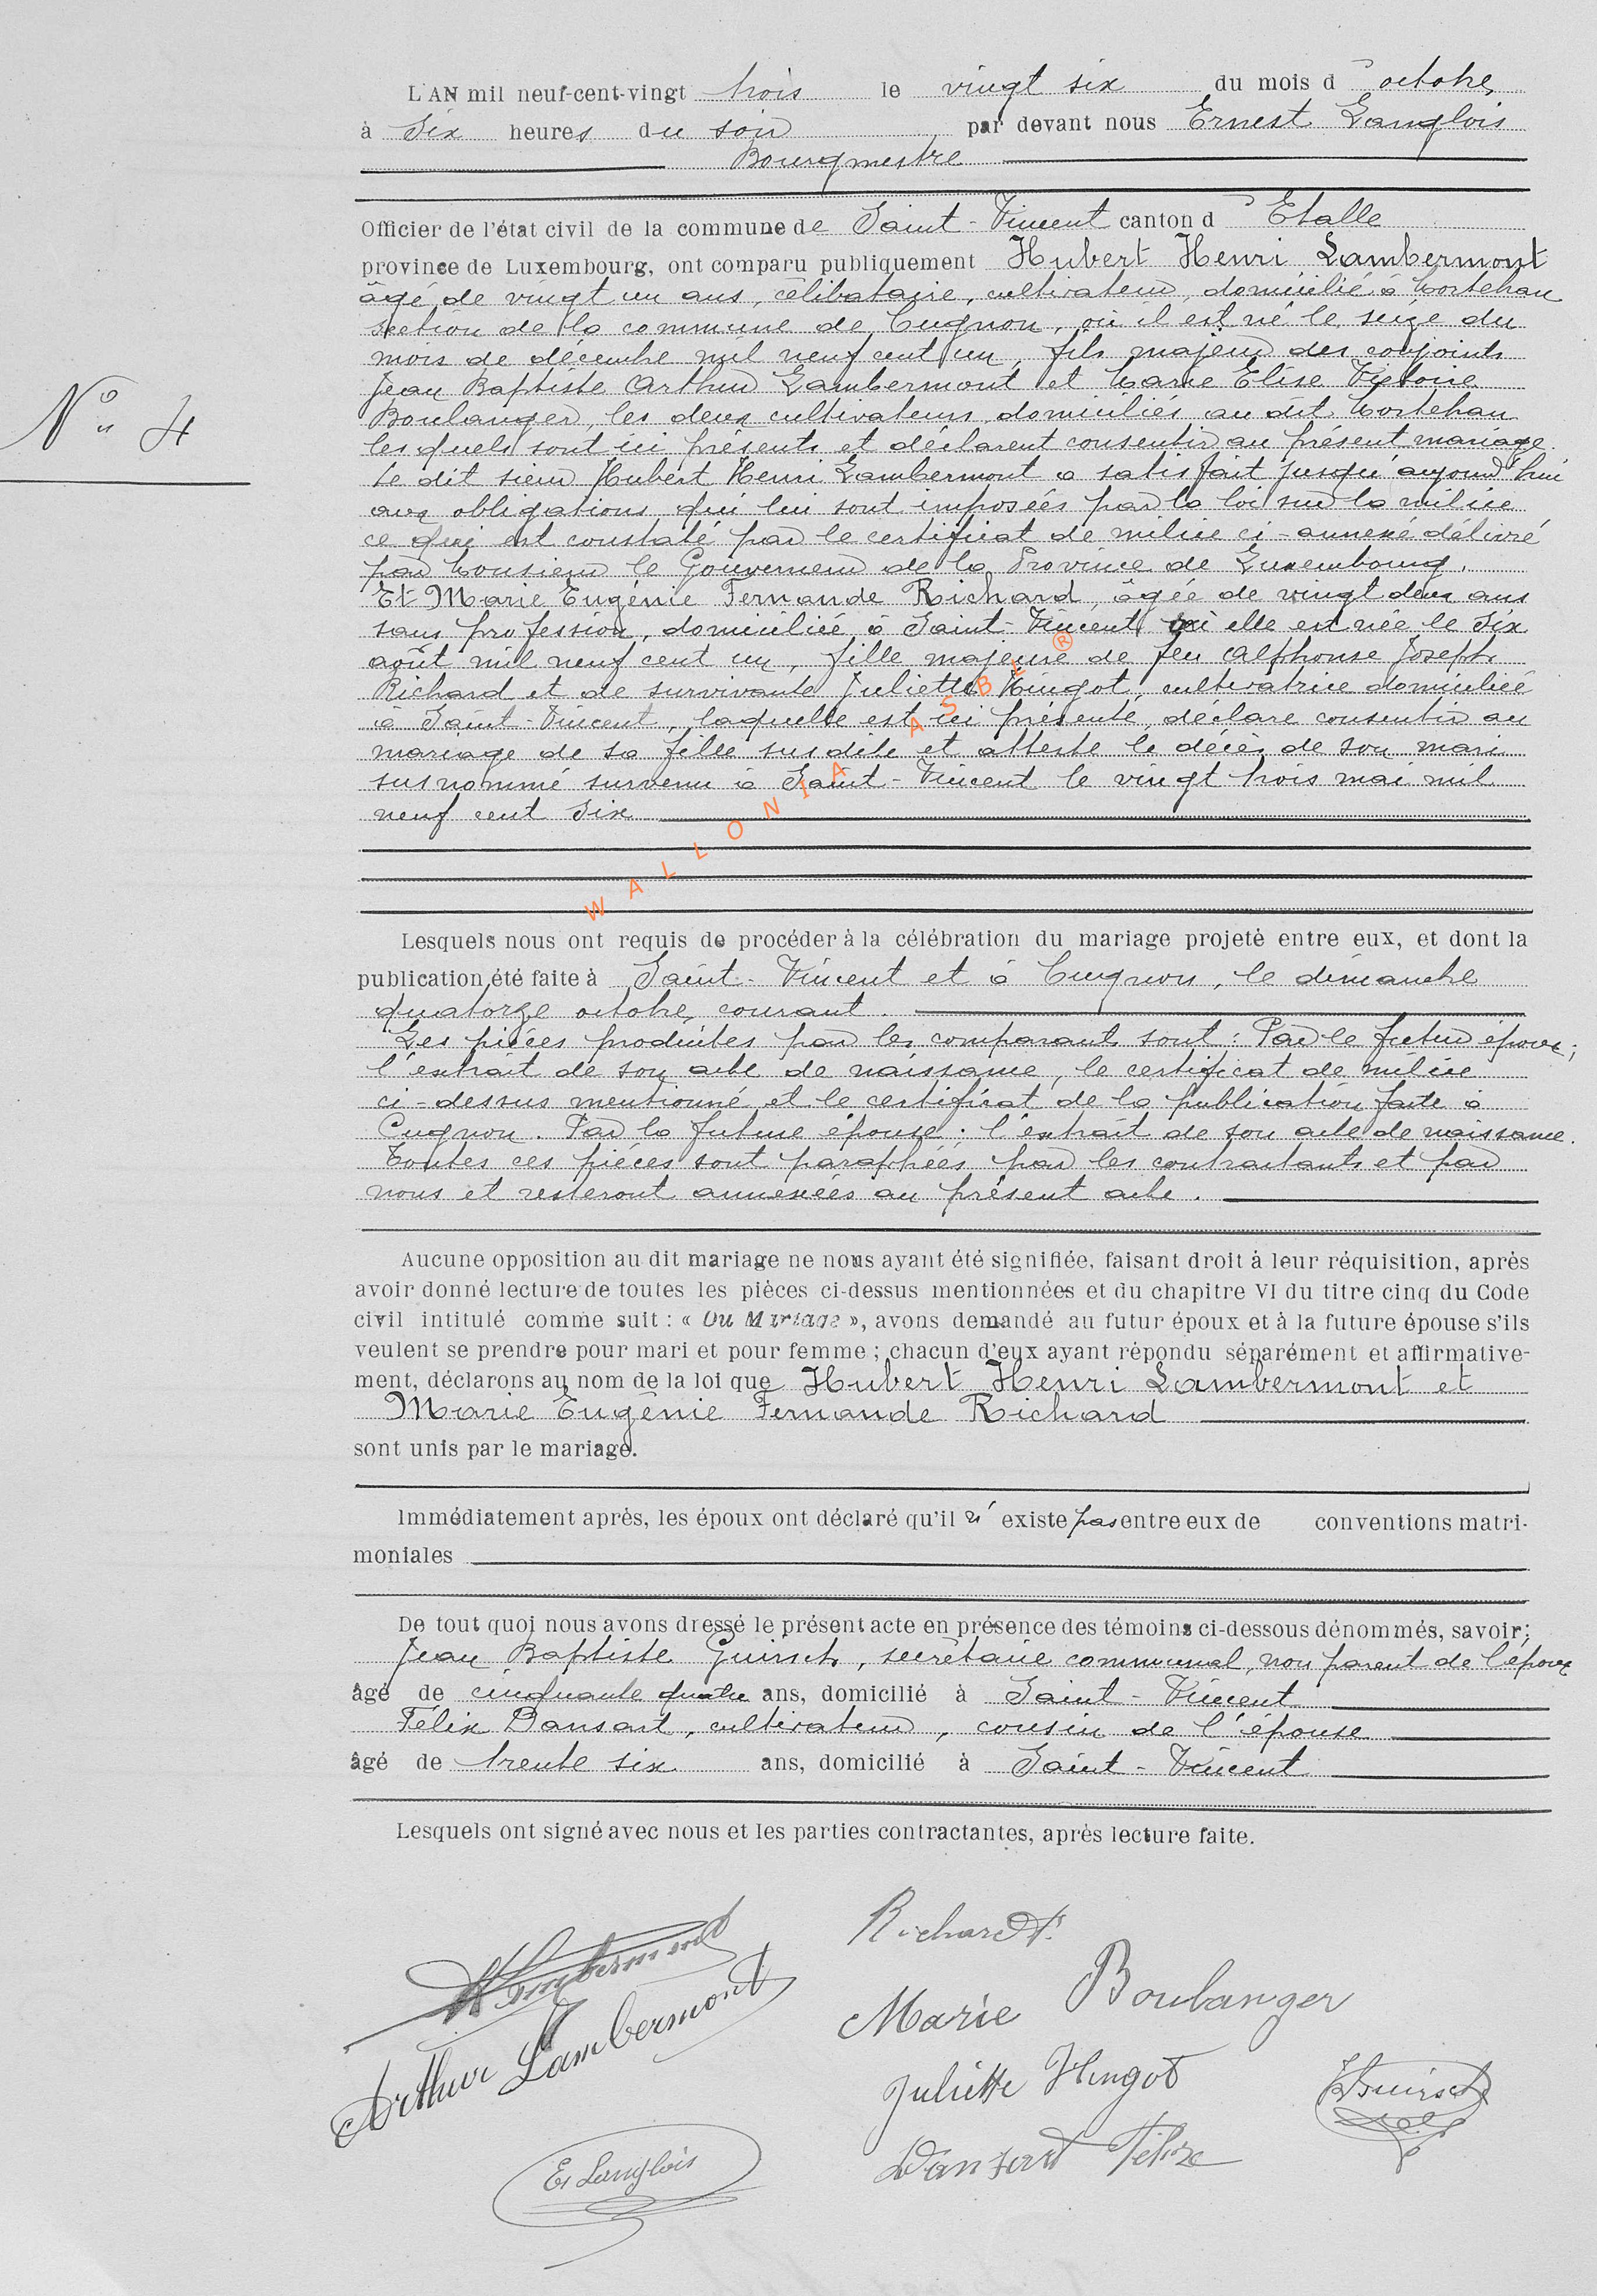 L'AN mil neuf-cent-vingt trois le vingt six du mois d'octobre
à six heures du soir par devant nous Ernest Langlois
Bourgmestre
Officier de l'état civil de la commune de Saint-Vincent canton d'Etalle
province de Luxembourg, ont comparu publiquement Hubert Henri Lambermont
âgé de vingt un ans, célibataire, cultivateur, domicilié à Mortehan
section de la commune de Cugnon, où il est né le seize du
mois de décembre mil neuf cent un, fils majeur des conjoints
Jean Baptiste Arthur Lambermont et Marie Elise Victoire
Boulanger, les deux cultivateurs domiciliés au dit Mortehan
lesquels sont ici présents et déclarent consentir au présent mariage.
Le dit sieur Hubert Henri Lambermont a satisfait jusqu'aujourd'hui
aux obligations qui lui sont imposées par la loi sur la milice
ce qui est constaté par le certificat de milice ci-annexé délivré
par Monsieur le Gouverneur de la Province de Luxembourg.
Et Marie Eugénie Fernande Richard, âgée de vingt deux ans
sans profession, domiciliée à Saint-Vincent où elle est née le six
août mil neuf cent un, fille majeure de feu Alphonse Joseph
Richard et de survivante Juliette Hingot, cultivatrice domiciliée
à Saint-Vincent, laquelle est ici présente, déclare consentir au
mariage de sa fille susdite et atteste le décès de son mari
susnommé survenu à Saint-Vincent le vingt trois mai mil
neuf cent six
N° 4
WALLONIA ASBL ®
Lesquels nous ont requis de procéder à la célébration du mariage projeté entre eux, et dont la
publication été faite à Saint-Vincent et à Cugnon, le dimanche
quatorze octobre courant.
Les pièces produites par les comparants sont : Par le futur époux ;
l'extrait de son acte de naissance, le certificat de milice
ci-dessus mentionné et le certificat de la publication faite à
Cugnon. Par la future épouse : l'extrait de son acte de naissance.
Toutes ces pièces sont paraphées par les contractants et par
nous et resteront annexées au présent acte.
Aucune opposition au dit mariage ne nous ayant été signifiée, faisant droit à leur réquisition, après
avoir donné lecture de toutes les pièces ci-dessus mentionnées et du chapitre VI du titre cinq du Code
civil intitulé comme suit : « Du Mariage », avons demandé au futur époux et à la future épouse s'ils
veulent se prendre pour mari et pour femme ; chacun d'eux ayant répondu séparément et affirmative-
ment, déclarons au nom de la loi que Hubert Henri Lambermont et
Marie Eugénie Fernande Richard
sont unis par le mariage.
Immédiatement après, les époux ont déclaré qu'il n'existe pas entre eux de conventions matri-
moniales
De tout quoi nous avons dressé le présent acte en présence des témoins ci-dessous dénommés, savoir :
Jean Baptiste Guirsch, secrétaire communal, non parent de l'époux
âgé de cinquante quatre ans, domicilié à Saint-Vincent
Félix Dansart, cultivateur, cousin de l'épouse
âgé de trente six ans, domicilié à Saint-Vincent
Lesquels ont signé avec nous et les parties contractantes, après lecture faite.
H Lambermont
Richard F.
Arthur Lambermont
Marie Boulanger
Juliette Hingot
Guirsch
E. Langlois
Dansart Félix